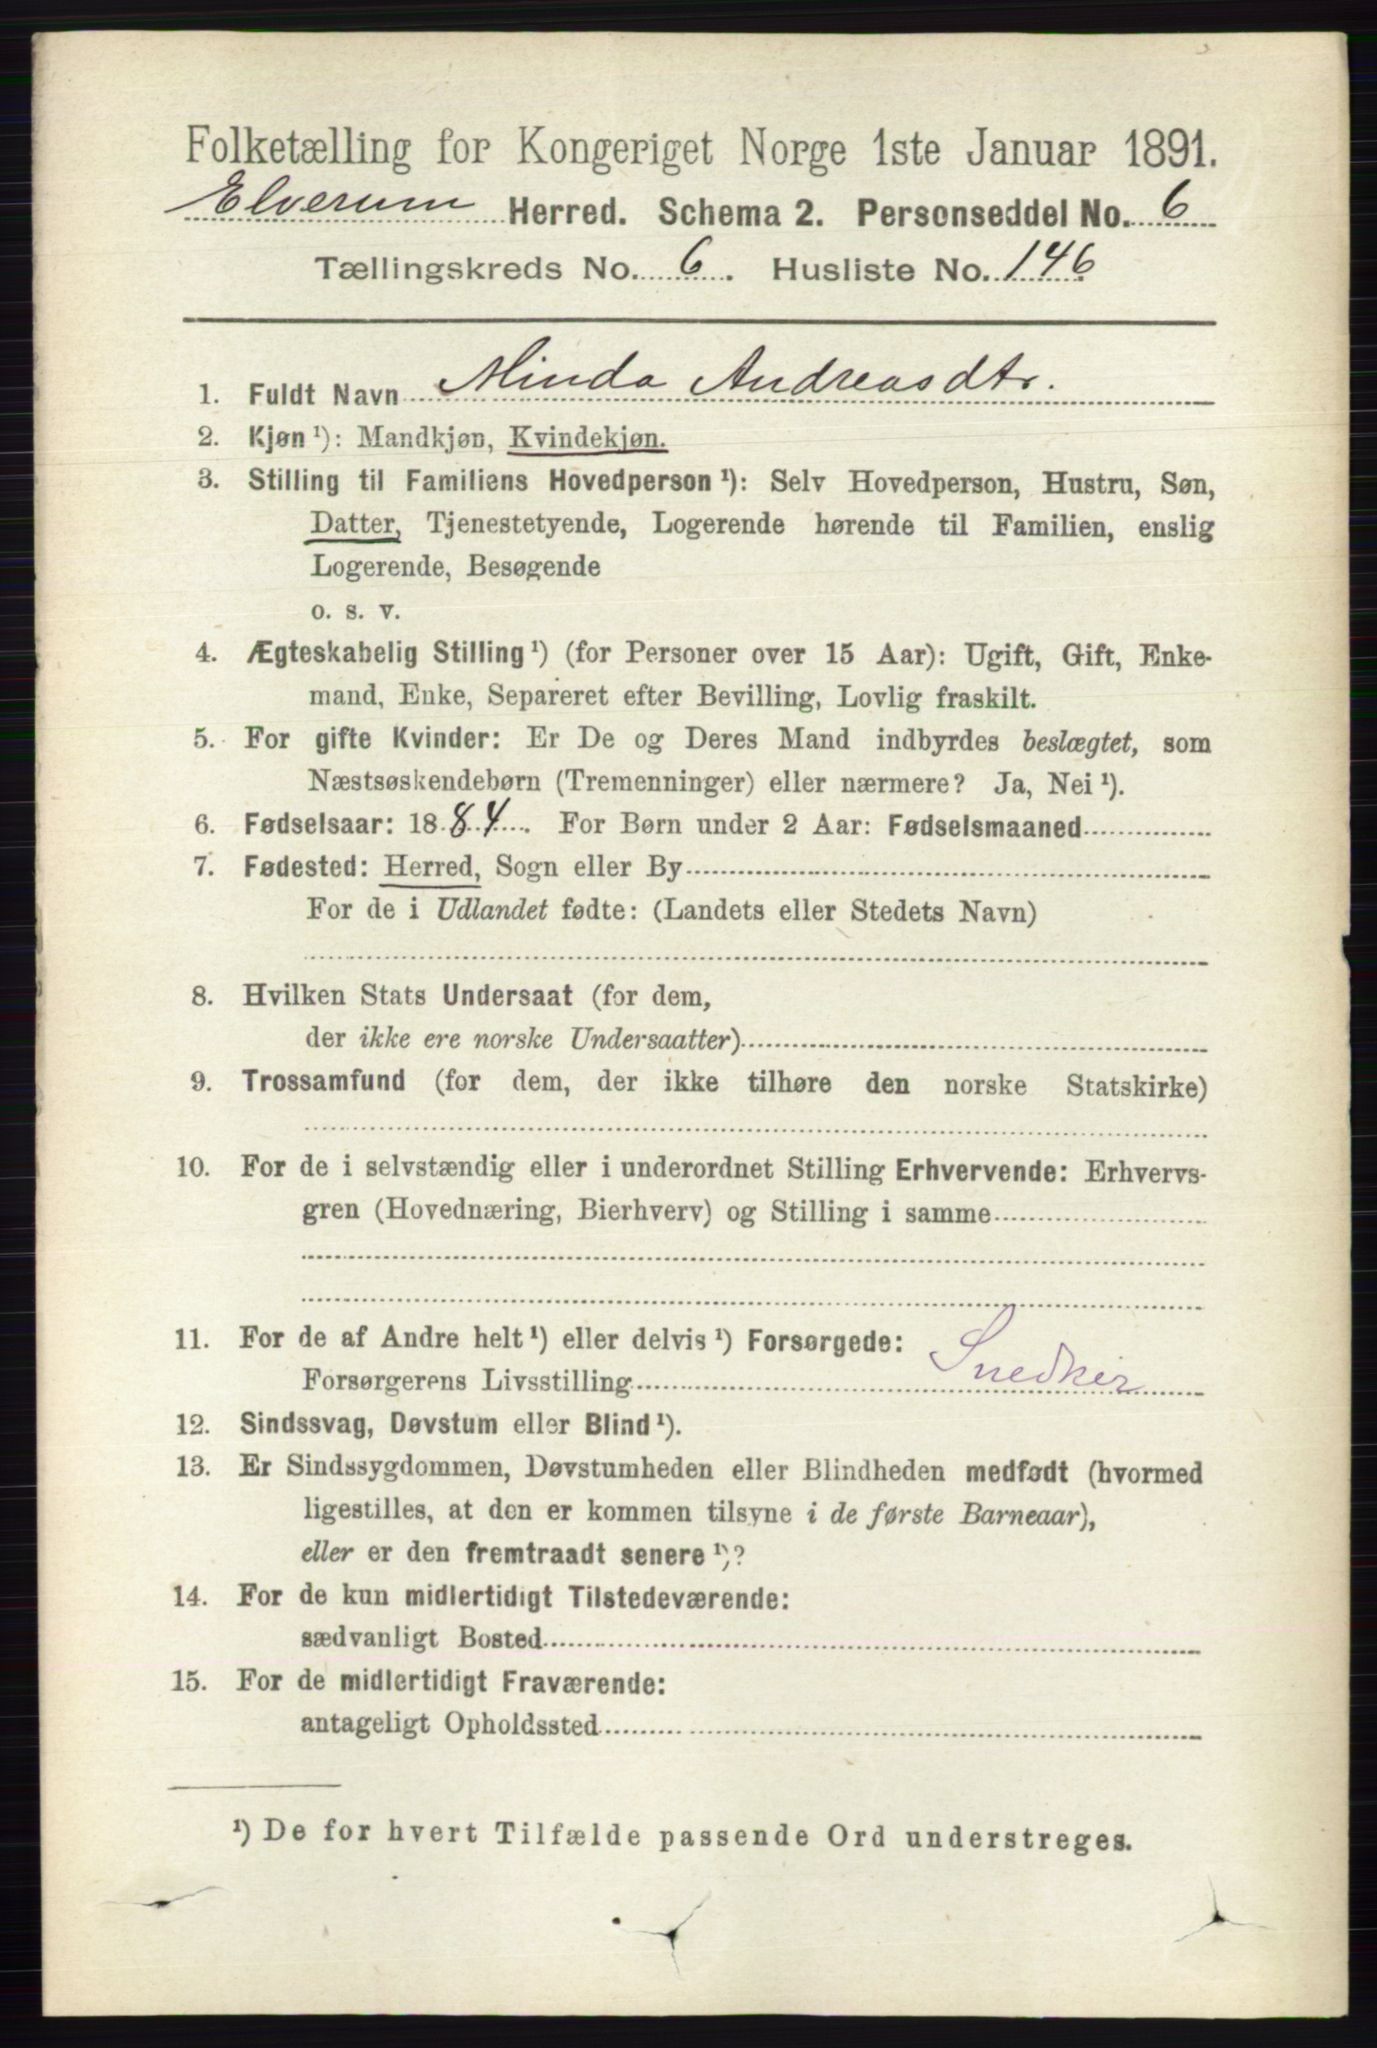 Folketælling for Kongeriget Norge 1ste Januar 1891.
Elverum Herred. Schema 2. Personseddel No. 6
Tællingskreds No. 6. Husliste No. 146
1. Fuldt Navn Minda Andreasdtr.
2. Kjøn ¹): Mandkjøn, Kvindekjøn.
3. Stilling til Familiens Hovedperson ¹): Selv Hovedperson, Hustru, Søn,
Datter, Tjenestetyende, Logerende hørende til Familien, enslig
Logerende, Besøgende
o. s. v.
4. Ægteskabelig Stilling ¹) (for Personer over 15 Aar): Ugift, Gift, Enke-
mand, Enke, Separeret efter Bevilling, Lovlig fraskilt.
5. For gifte Kvinder: Er De og Deres Mand indbyrdes beslægtet, som
Næstsøskendebørn (Tremenninger) eller nærmere? Ja, Nei ¹).
6. Fødselsaar: 1884. For Børn under 2 Aar: Fødselsmaaned
7. Fødested: Herred, Sogn eller By
For de i Udlandet fødte: (Landets eller Stedets Navn)
8. Hvilken Stats Undersaat (for dem,
der ikke ere norske Undersaatter)
9. Trossamfund (for dem, der ikke tilhøre den norske Statskirke)
10. For de i selvstændig eller i underordnet Stilling Erhvervende: Erhvervs-
gren (Hovednæring, Bierhverv) og Stilling i samme
11. For de af Andre helt ¹) eller delvis ¹) Forsørgede:
Forsørgerens Livsstilling Snedker
12. Sindssvag, Døvstum eller Blind ¹).
13. Er Sindssygdommen, Døvstumheden eller Blindheden medfødt (hvormed
ligestilles, at den er kommen tilsyne i de første Barneaar),
eller er den fremtraadt senere ¹)?
14. For de kun midlertidigt Tilstedeværende:
sædvanligt Bosted
15. For de midlertidigt Fraværende:
antageligt Opholdssted
¹) De for hvert Tilfælde passende Ord understreges.